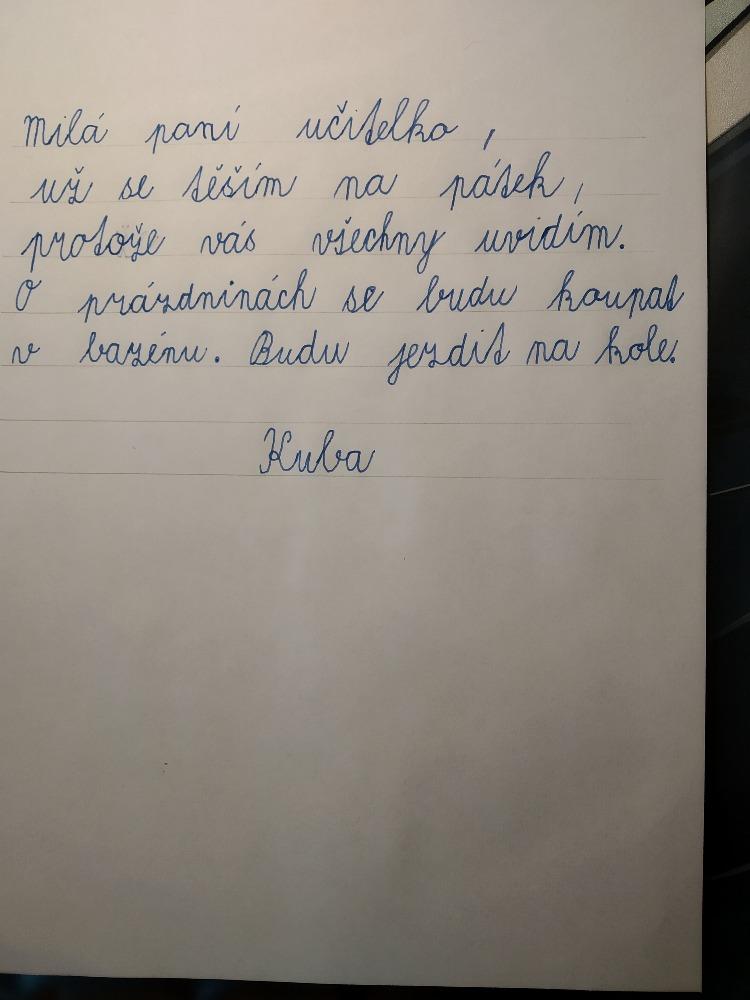 Milá paní učitelko,
už se těším na pátek,
protože vás všechny uvidím.
O prázdninách se budu koupat
v bazénu. Budu jezdit na kole.
Kuba